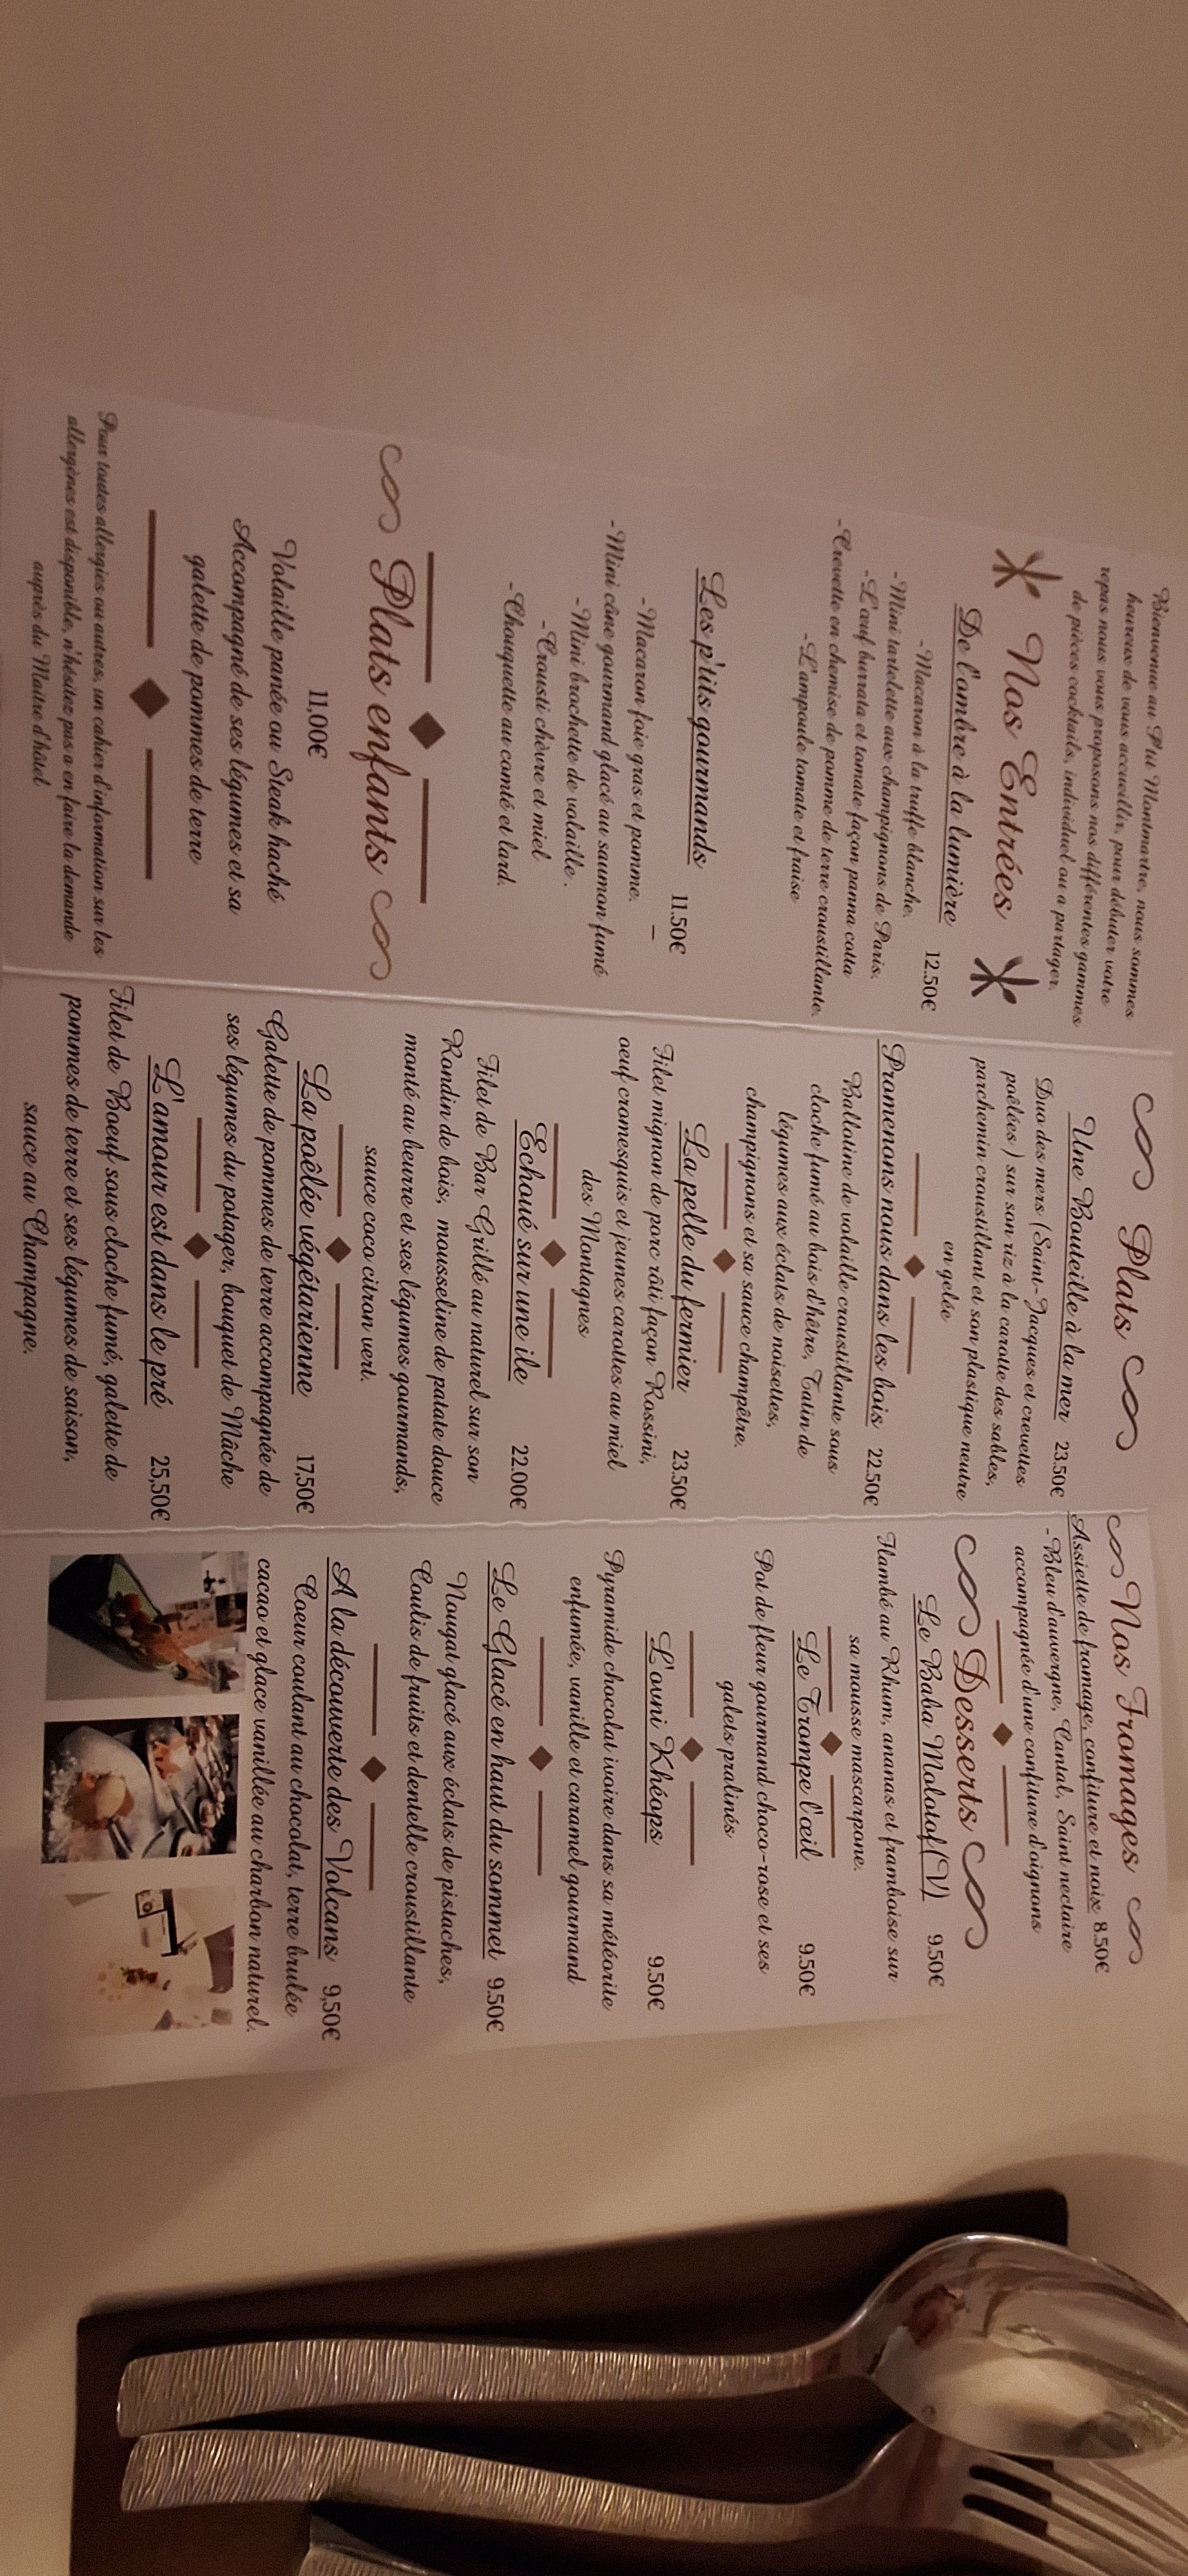 Bienvenue au P'tit Montmartre, nous sommes
heureux de vous accueillir, pour débuter votre
repas nous vous proposons nos différentes gammes
de pièces cocktails, individuel ou a partager.
Nos Entrées
De l'ombre à la lumière 12.50€
-Macaron à la truffe blanche.
-Mini tartelette aux champignons de Paris.
-L'œuf burrata et tomate façon panna cotta
-Crevette en chemise de pomme de terre croustillante.
-L'ampoule tomate et fraise
Les p'tits gourmands 11.50€
-Macaron foie gras et pomme. –
-Mini cône gourmand glacé au saumon fumé
-Mini brochette de volaille.
-Crousti chèvre et miel
-Chouquette au comté et lard.
Plats enfants
11,00€
Volaille panée ou Steak haché
Accompagné de ses légumes et sa
galette de pommes de terre
Pour toutes allergies ou autres, un cahier d'information sur les
allergènes est disponible, n'hésitez pas a en faire la demande
auprès du Maître d'hôtel
Plats
Une Bouteille à la mer 23.50€
Duo des mers (Saint-Jacques et crevettes
poêlées) sur son riz à la carotte des sables,
parchemin croustillant et son plastique neutre
en gelée
Promenons nous dans les bois 22.50€
Ballotine de volaille croustillante sous
cloche fumé au bois d'hêtre, Tatin de
légumes aux éclats de noisettes,
champignons et sa sauce champêtre.
La pelle du fermier 23.50€
Filet mignon de porc rôti façon Rossini,
oeuf cromesquis et jeunes carottes au miel
des Montagnes
Echoué sur une ile 22.00€
Filet de Bar Grillé au naturel sur son
Rondin de bois, mousseline de patate douce
monté au beurre et ses légumes gourmands,
sauce coco citron vert.
La poêlée végétarienne 17,50€
Galette de pommes de terre accompagnée de
ses légumes du potager, bouquet de Mâche
L'amour est dans le pré 25,50€
Filet de Boeuf sous cloche fumé, galette de
pommes de terre et ses légumes de saison,
sauce au Champagne.
Nos Fromages
Assiette de fromage, confiture et noix 8.50€
-Bleu d'auvergne, Cantal, Saint nectaire
accompagnée d'une confiture d'oignons
Desserts
Le Baba Molotof(V) 9.50€
Flambé au Rhum, ananas et framboise sur
sa mousse mascarpone.
Le Trompe l'œil 9.50€
Pot de fleur gourmand choco-rose et ses
galets pralinés
L'ovni Khéops 9.50€
Pyramide chocolat ivoire dans sa météorite
enfumée, vanille et caramel gourmand
Le Glacé en haut du sommet 9.50€
Nougat glacé aux éclats de pistaches,
Coulis de fruits et dentelle croustillante
A la découverte des Volcans 9,50€
Coeur coulant au chocolat, terre brulée
cacao et glace vanillée au charbon naturel.